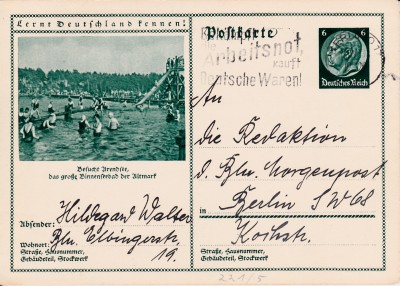 Lernt Deutschland kennen!
Postkarte
6 6
Deutsches Reich
Arbeitsnot,
kauft
Deutsche Waren!
Besucht Arendsee,
das große Binnenseebad der Altmark
An
die Redaktion
d. Bln. Morgenpost
in Berlin SW 68
Kochstr.
Absender: Hildegard Walter
Wohnort: Bln. Elbingerstr.
19.
Straße, Hausnummer,
Gebäudeteil, Stockwerk
Straße, Hausnummer,
Gebäudeteil, Stockwerk